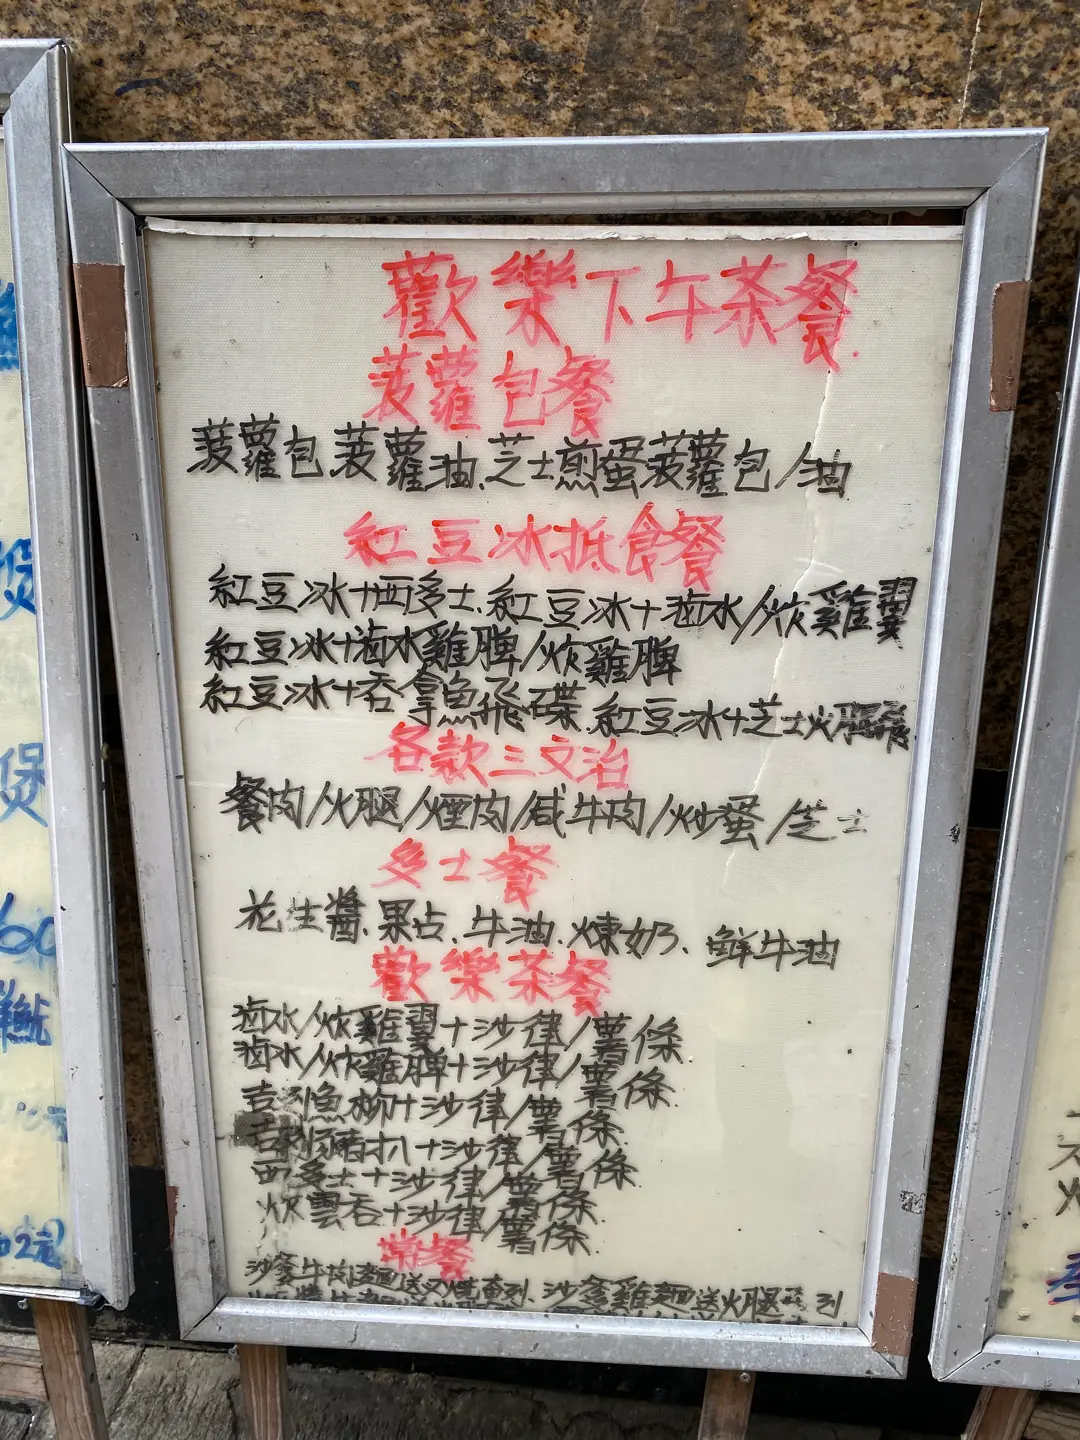 歡樂下午茶餐
菠蘿包餐
菠蘿包.菠蘿油.芝士煎蛋菠蘿包/油
紅豆冰抵食餐
紅豆冰+西多士.紅豆冰+滷水/炸雞翼
紅豆冰+滷水雞髀/炸雞髀
紅豆冰+吞拿魚飛碟.紅豆冰+芝士火腿飛
各款三文治
餐肉/火腿/煙肉/咸牛肉/炒蛋/芝士
多士餐
花生醬.果占.牛油.煉奶.鮮牛油
歡樂茶餐
滷水/炸雞翼+沙律/薯條
滷水/炸雞髀+沙律/薯條
吉列魚柳+沙律/薯條
吉列豬扒+沙律/薯條
西多士+沙律/薯條
炸雲吞+沙律/薯條
常餐
沙爹牛肉麵送 沙爹雞麵送火腿 列
煲
煲
60
2元